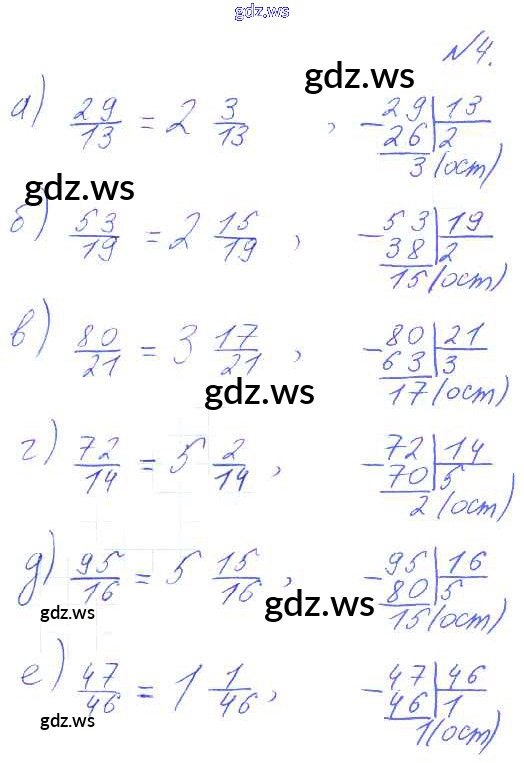 gdz.ws
№4.
gdz.ws
а) 29/13 = 2 3/13, - 29 | 13
26 | 2
3 (ост)
gdz.ws
б) 53/19 = 2 15/19, - 53 | 19
38 | 2
15 (ост)
в) 80/21 = 3 17/21, - 80 | 21
63 | 3
17 (ост)
gdz.ws
г) 72/14 = 5 2/14, - 72 | 14
70 | 5
2 (ост)
д) 95/16 = 5 15/16, - 95 | 16
80 | 5
15 (ост)
gdz.ws
gdz.ws
е) 47/46 = 1 1/46, - 47 | 46
46 | 1
1 (ост)
gdz.ws